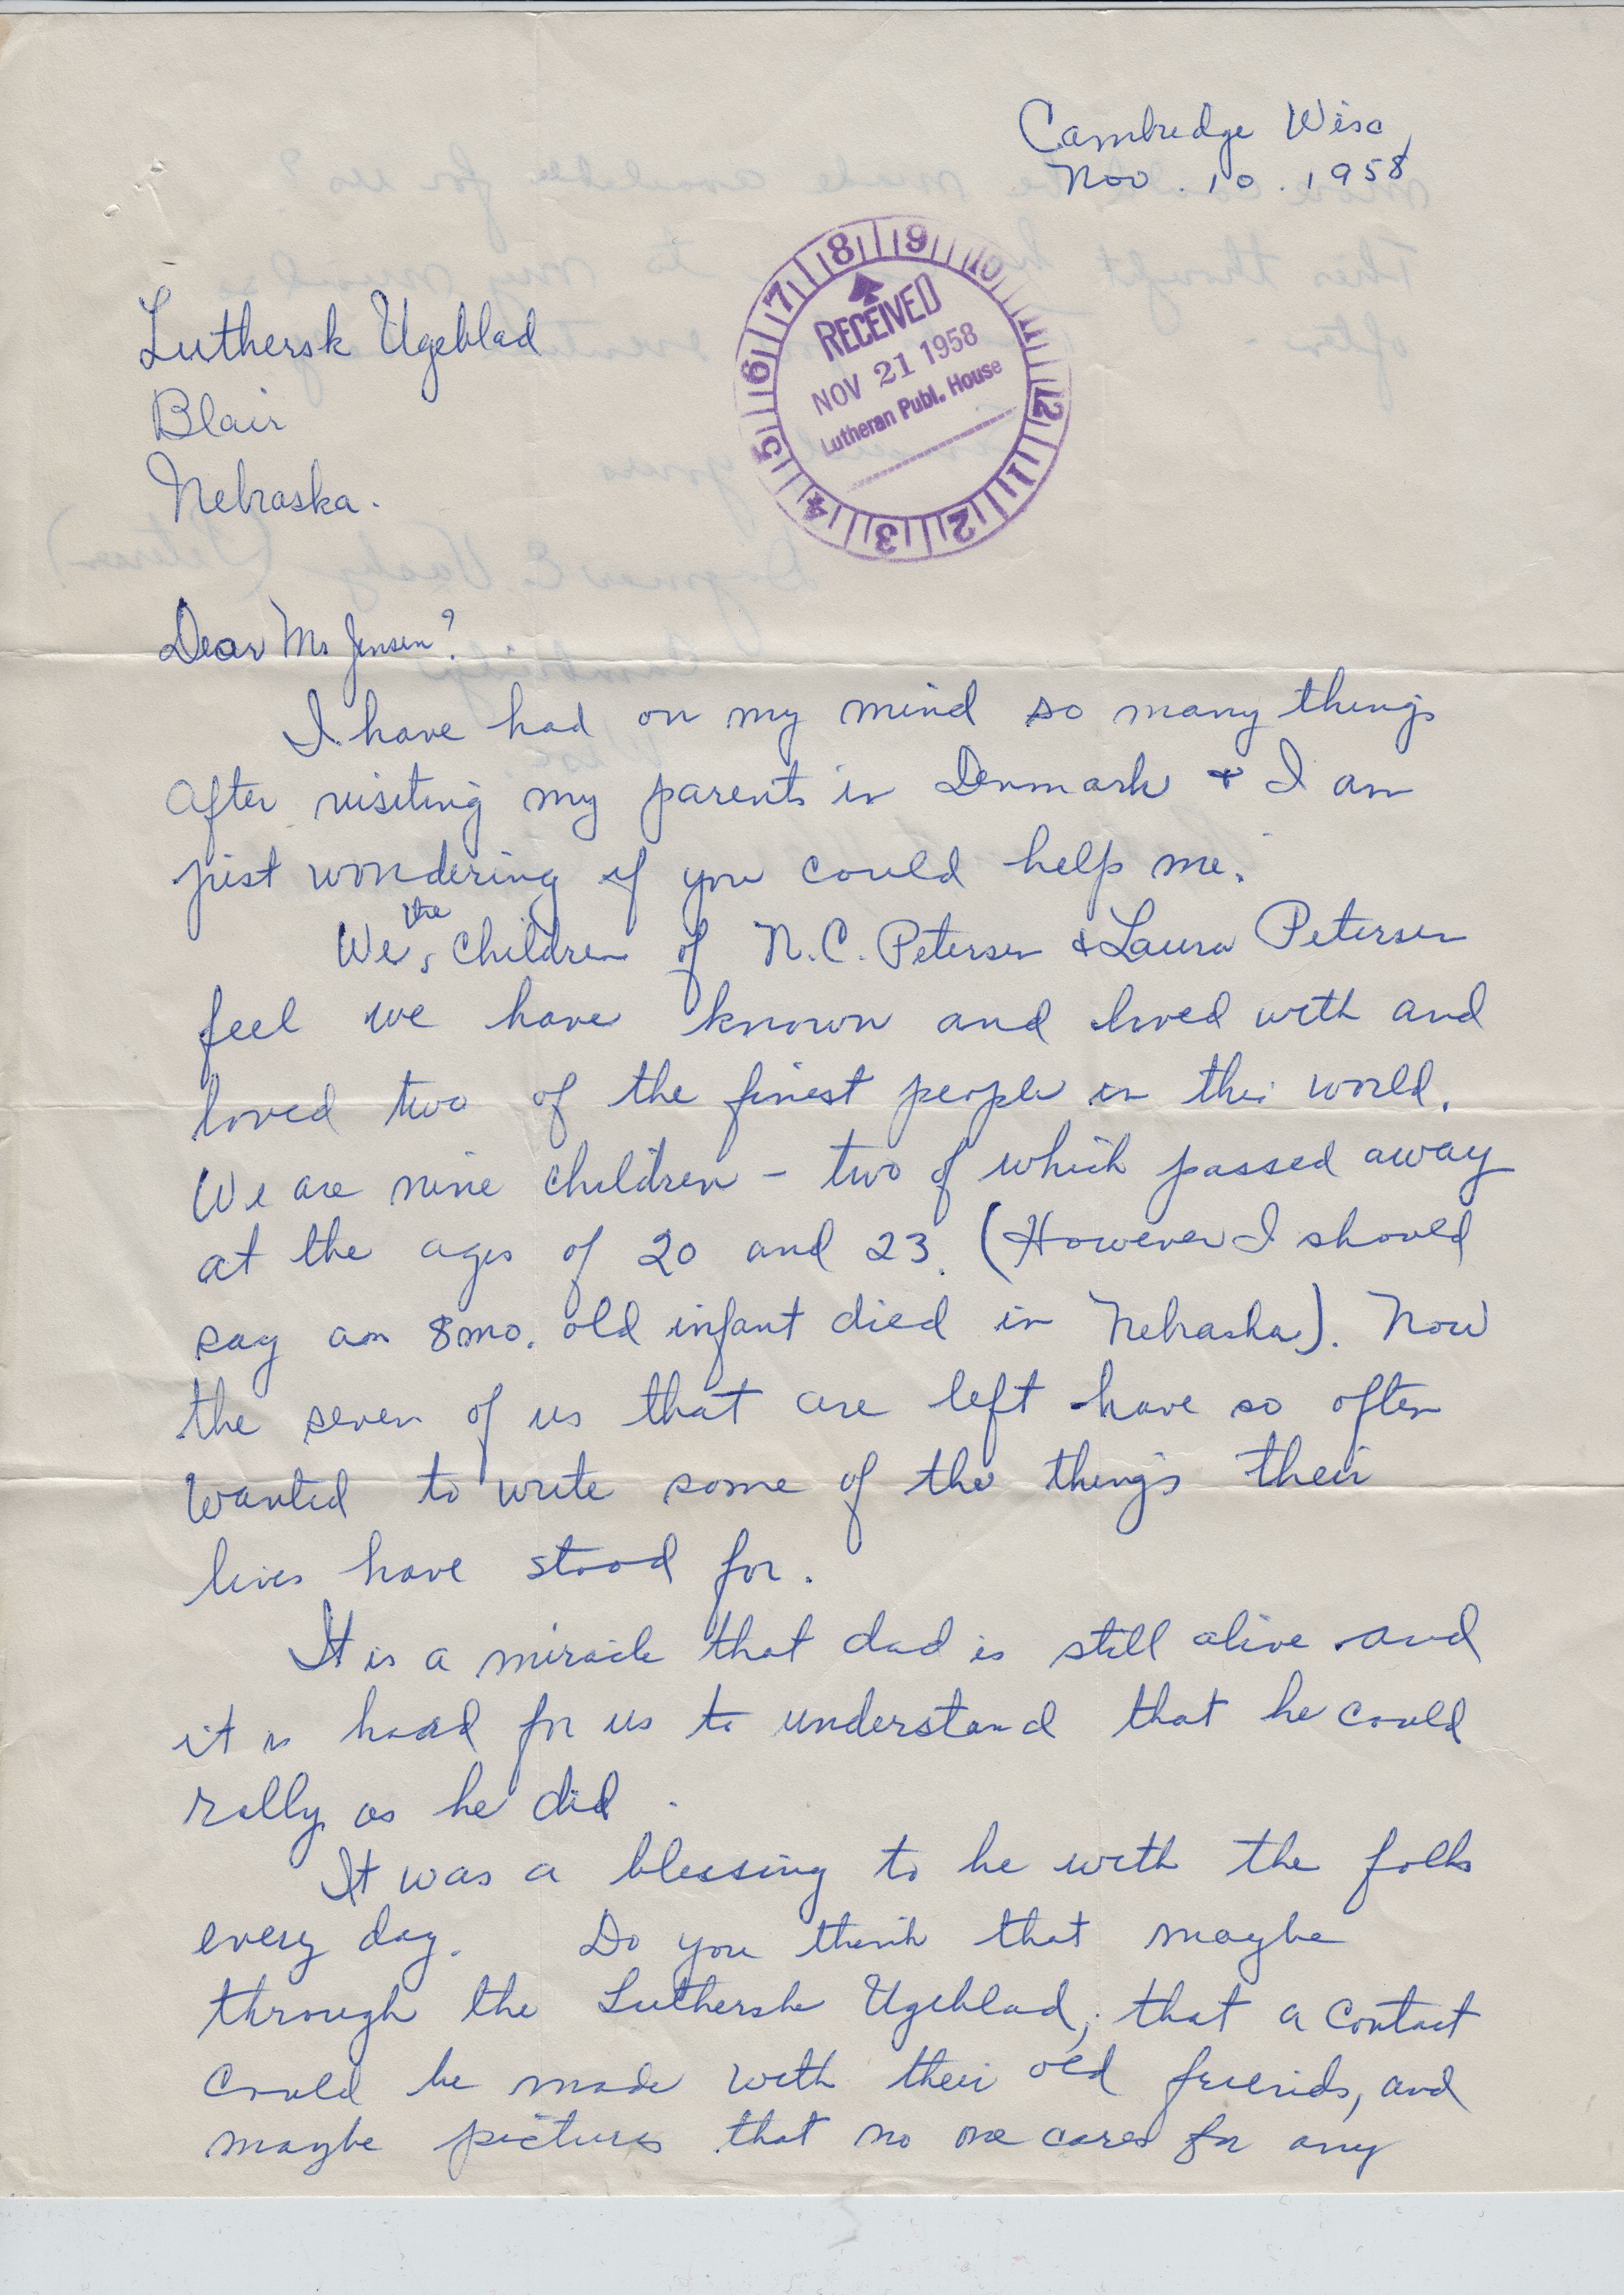 Cambridge Wisc,
Nov. 10. 1958
8 9 10 11 12 1 2 3 4 5 6 7
RECEIVED
NOV 21 1958
Lutheran Publ. House
Luthersk Ugeblad
Blair
Nebraska.
Dear Mr Jensen?
I have had on my mind so many things
after visiting my parents in Denmark & I am
just wondering if you could help me.
We, the children of N.C. Petersen & Laura Petersen
feel we have known and lived with and
loved two of the finest people in this world.
We are nine children - two of which passed away
at the ages of 20 and 23. (However I should
say an 8 mo. old infant died in Nebraska). Now
the seven of us that are left have so often
wanted to write some of the things their
lives have stood for.
It is a miracle that dad is still alive and
it is hard for us to understand that he could
rally as he did.
It was a blessing to be with the folks
every day. Do you think that maybe
through the Luthersk Ugeblad, that a contact
could be made with their old friends, and
maybe pictures that no one cares for any